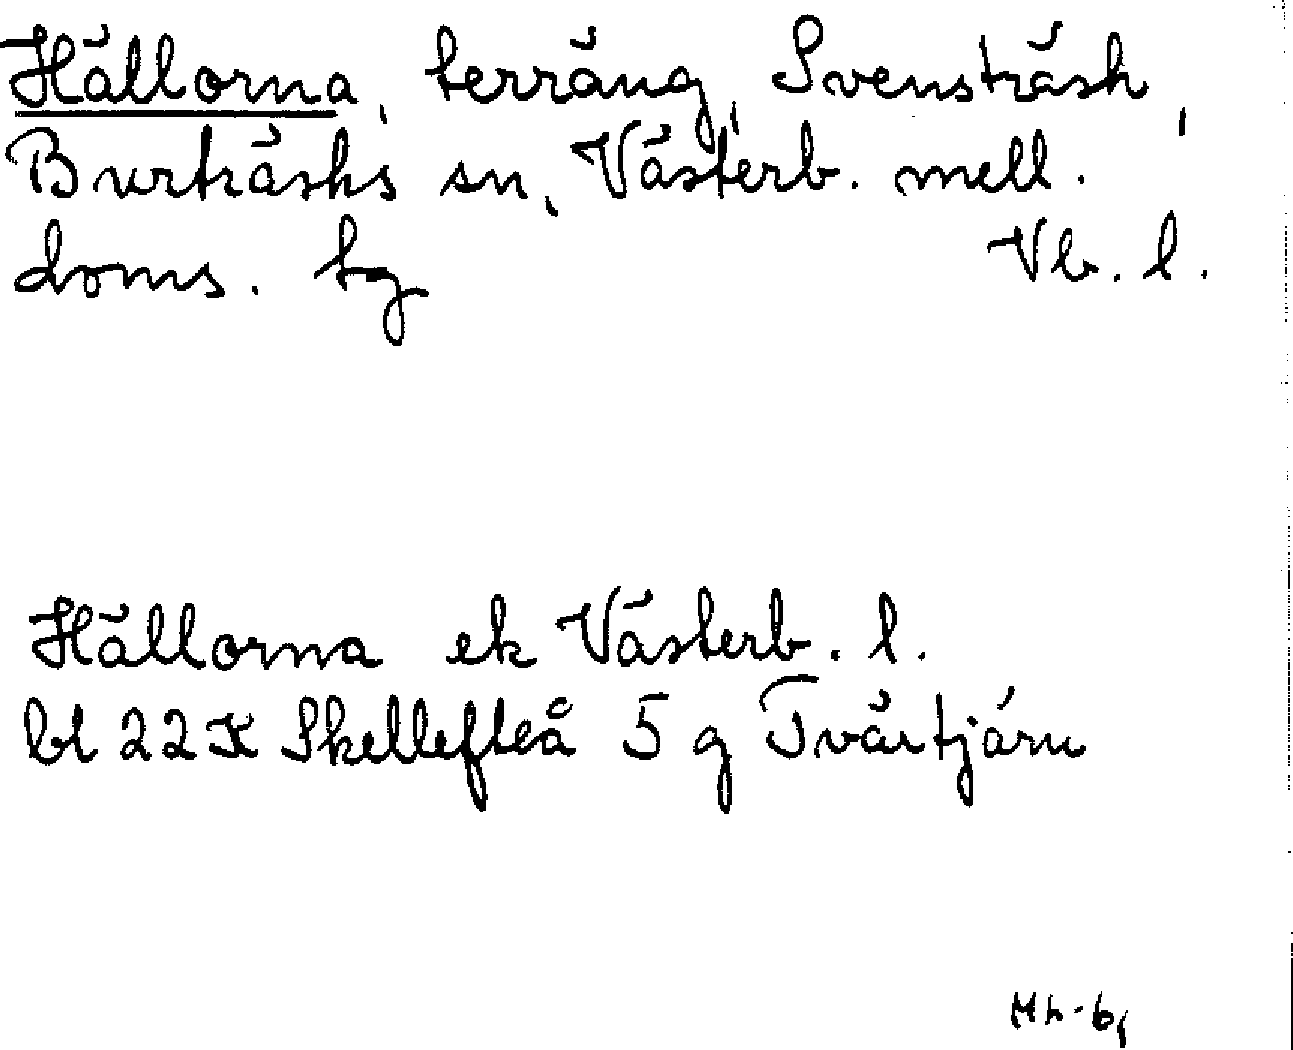 Hällorna, terräng, Svensträsk,
Burträsks sn, Västerb. mell.
doms. tg Vb. l.
Hällorna ek Västerb. l.
bl 22 K Skellefteå 5 g Tvärtjärn